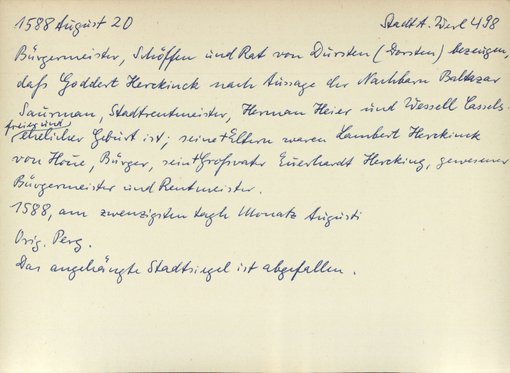 1588 August 20 StadtA. Werl 498
Bürgermeister, Schöffen und Rat von Dursten (Dorsten) bezeugen,
dafs Goddert Herckinck nach Aussage der Nachbarn Baltazar
Saurman, Stadtrentmeister, Herman Heier und Wessell Cassels
freier und
ehelicher Geburt ist; seine Eltern waren Lambert Herckinck
von Houe, Bürger, sein Großvater Euerhardt Hercking, gewesener
Bürgermeister und Rentmeister.
1588, am zwenzigsten tagh Monatz Augusti
Orig. Perg.
Das angehängte Stadtsiegel ist abgefallen.